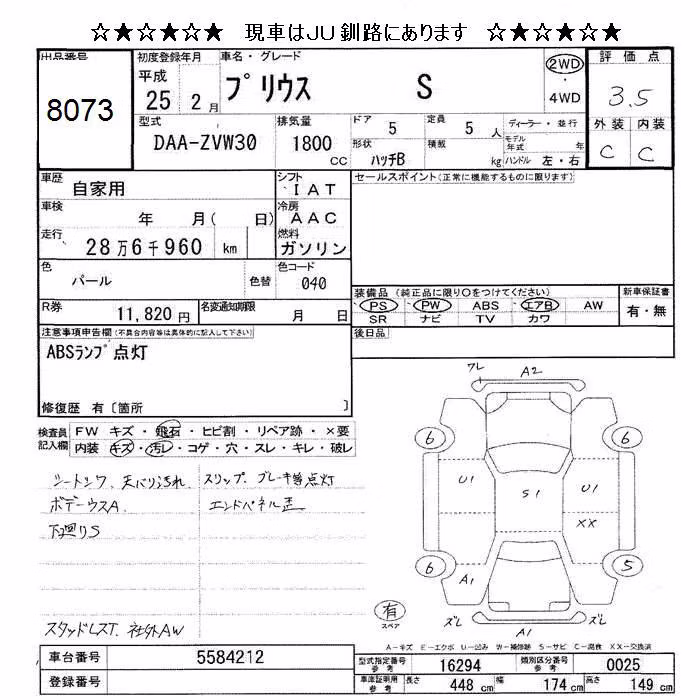 ☆★☆★☆★ 現車はＪＵ釧路にあります ☆★☆★☆★
出品番号
8073
初度登録年月
平成
25 2 月
車名・グレード
プリウス S
2WD
・
4WD
評価点
3.5
外装 内装
C C
型式
DAA-ZVW30
排気量
1800
CC
ドア
5
定員
5 人
ディーラー・並行
モデル年式 年
形状
ハッチB
積載
kg
ハンドル 左・右
車歴
自家用
シフト
IAT
セールスポイント(正常に機能するものに限ります)
車検
年 月( 日)
冷房
AAC
走行
28万6千960 km
燃料
ガソリン
色
パール
色替
色コード
040
装備品(純正品に限り○をつけてください)
PS PW ABS エアB AW
SR ナビ TV カワ
新車保証書
有・無
R券
11,820 円
名変通知期限
月 日
後日品
注意事項申告欄(不具合内容等は具体的に記入して下さい)
ABSランプ点灯
修復歴 有〔箇所 〕
検査員記入欄
FW キズ・飛石・ヒビ割・リペア跡・×要
内装 キズ・汚レ・コゲ・穴・スレ・キレ・破レ
シートシワ 天バリ汚れ スリップ、ブレーキ等点灯
ボデーウスA エンドパネル歪
下廻りS
スタッドレスT. 社外AW
ワレ
A2
6
6
U1
S1
U1
XX
6
A1
5
有
スペア
ズレ
A1
ズレ
A－キズ E－エクボ U－凹み W－補修跡 S－サビ C－腐食 XX－交換済
車台番号
5584212
登録番号
型式指定番号
参考
16294
類別区分番号
参考
0025
車庫証明用
参考
長さ
448 cm
幅
174 cm
高さ
149 cm